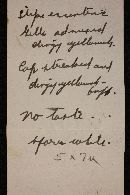 Stipe eccentric
Gills adnexed
dingy yellowish.
Cap streaked and
dingy yellowish-
buff.
No taste.
Spore white.
5 x 7 µ